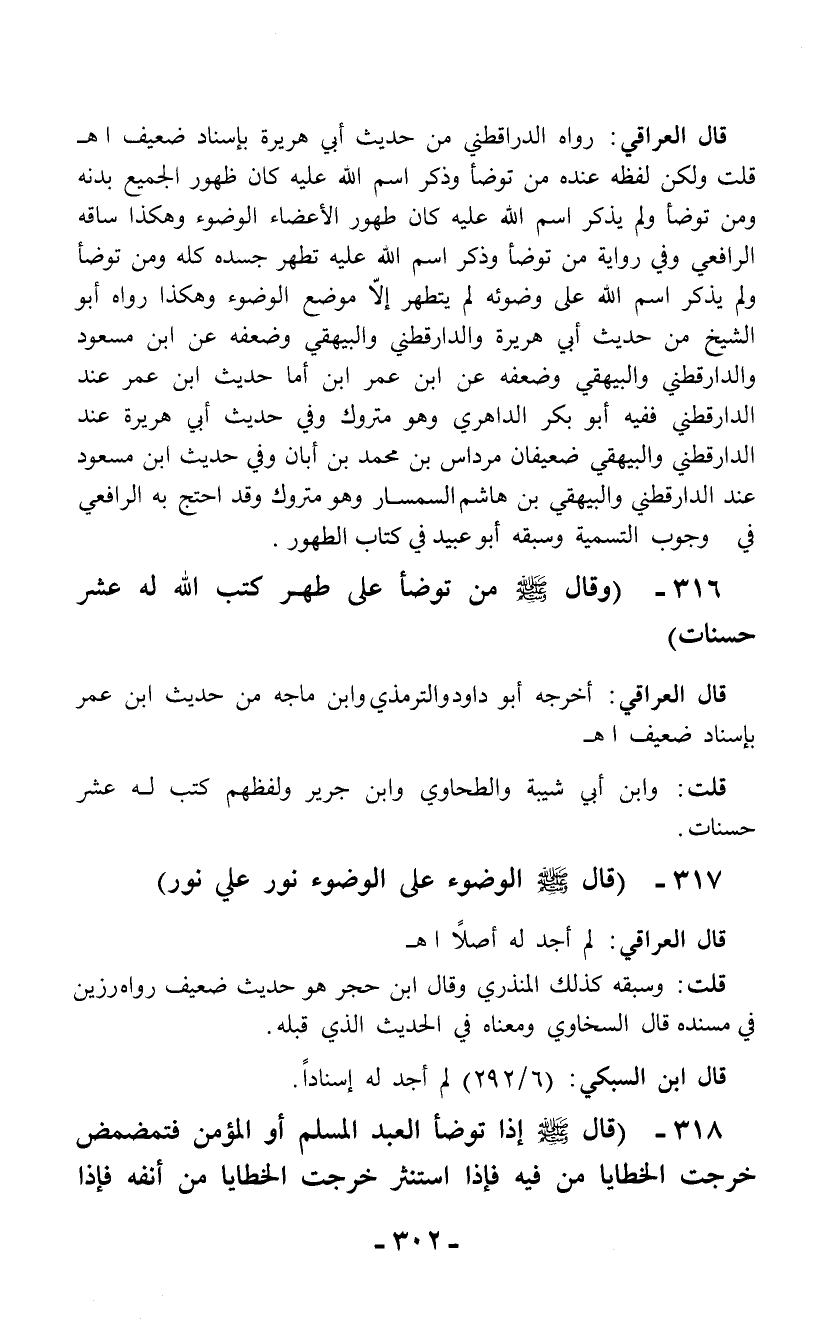 قال العراقي: رواه الدراقطني من حديث أبي هريرة بإسناد ضعيف ا هـ
قلت ولكن لفظه عنده من توضأ وذكر اسم الله عليه كان ظهور الجميع بدنه
ومن توضأ ولم يذكر اسم الله عليه كان طهور الأعضاء الوضوء وهكذا ساقه
الرافعي وفي رواية من توضأ وذكر اسم الله عليه تطهر جسده كله ومن توضأ
ولم يذكر اسم الله على وضوئه لم يتطهر إلّا موضع الوضوء وهكذا رواه أبو
الشيخ من حديث أبي هريرة والدارقطني والبيهقي وضعفه عن ابن مسعود
والدارقطني والبيهقي وضعفه عن ابن عمر ابن أما حديث ابن عمر عند
الدارقطني ففيه أبو بكر الداهري وهو متروك وفي حديث أبي هريرة عند
الدارقطني والبيهقي ضعيفان مرداس بن محمد بن أبان وفي حديث ابن مسعود
عند الدارقطني والبيهقي بن هاشم السمسار وهو متروك وقد احتج به الرافعي
في وجوب التسمية وسبقه أبو عبيد في كتاب الطهور .
٣١٦ ـ (وقال ﷺ من توضأ على طهر كتب الله له عشر
حسنات)
قال العراقي: أخرجه أبو داود والترمذي وابن ماجه من حديث ابن عمر
بإسناد ضعيف ا هـ
قلت: وابن أبي شيبة والطحاوي وابن جرير ولفظهم كتب له عشر
حسنات.
٣١٧ ـ (قال ﷺ الوضوء على الوضوء نور علي نور)
قال العراقي: لم أجد له أصلاً ا هـ
قلت: وسبقه كذلك المنذري وقال ابن حجر هو حديث ضعيف رواه رزين
في مسنده قال السخاوي ومعناه في الحديث الذي قبله.
قال ابن السبكي: (٢٩٢/٦) لم أجد له إسناداً.
٣١٨ ـ (قال ﷺ إذا توضأ العبد المسلم أو المؤمن فتمضمض
خرجت الخطايا من فيه فإذا استنثر خرجت الخطايا من أنفه فإذا
ـ ٣٠٢ ـ